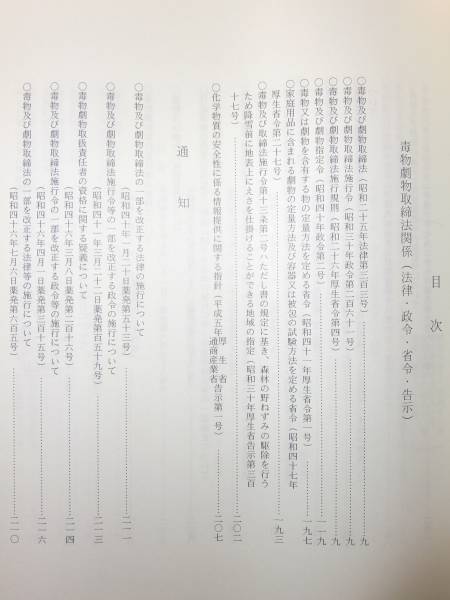 目次
毒物劇物取締法関係(法律・政令・省令・告示)
○毒物及び劇物取締法(昭和二十五年法律第三百三号)……九
○毒物及び劇物取締法施行令(昭和三十年政令第二百六十一号)……九
○毒物及び劇物取締法施行規則(昭和二十六年厚生省令第四号)……九
○毒物及び劇物指定令(昭和四十年政令第二号)……一一九
○毒物又は劇物を含有する物の定量方法を定める省令(昭和四十一年厚生省令第一号)……一九七
○家庭用品に含まれる劇物の定量方法及び容器又は被包の試験方法を定める省令(昭和四十七年
厚生省令第二十七号)……一九三
○毒物及び劇物取締法施行令第十三条第二号ハただし書の規定に基き、森林の野ねずみの駆除を行う
ため降雪前に地表上にえさを仕掛けることができる地域の指定(昭和三十年厚生省告示第三百
十七号)……二〇二
○化学物質の安全性に係る情報提供に関する指針(平成五年厚生省通商産業省告示第一号)……二〇七
通知
○毒物及び劇物取締法の一部を改正する法律の施行について
(昭和四十年一月二十日薬発第五十三号)……二一一
○毒物及び劇物取締法施行令等の一部を改正する政令の施行について
○毒物劇物取扱責任者の資格に関する疑義について
(昭和四十一年三月二十二日薬発第百五十九号)……二一三
(昭和四十六年三月八日薬発第二百十六号)……二一四
○毒物及び劇物取締法施行令の一部を改正する政令等の施行について
(昭和四十六年四月一日薬発第三百十五号)……二一六
○毒物及び劇物取締法の一部を改正する法律等の施行について
(昭和四十六年七月六日薬発第六百五号)……二一〇